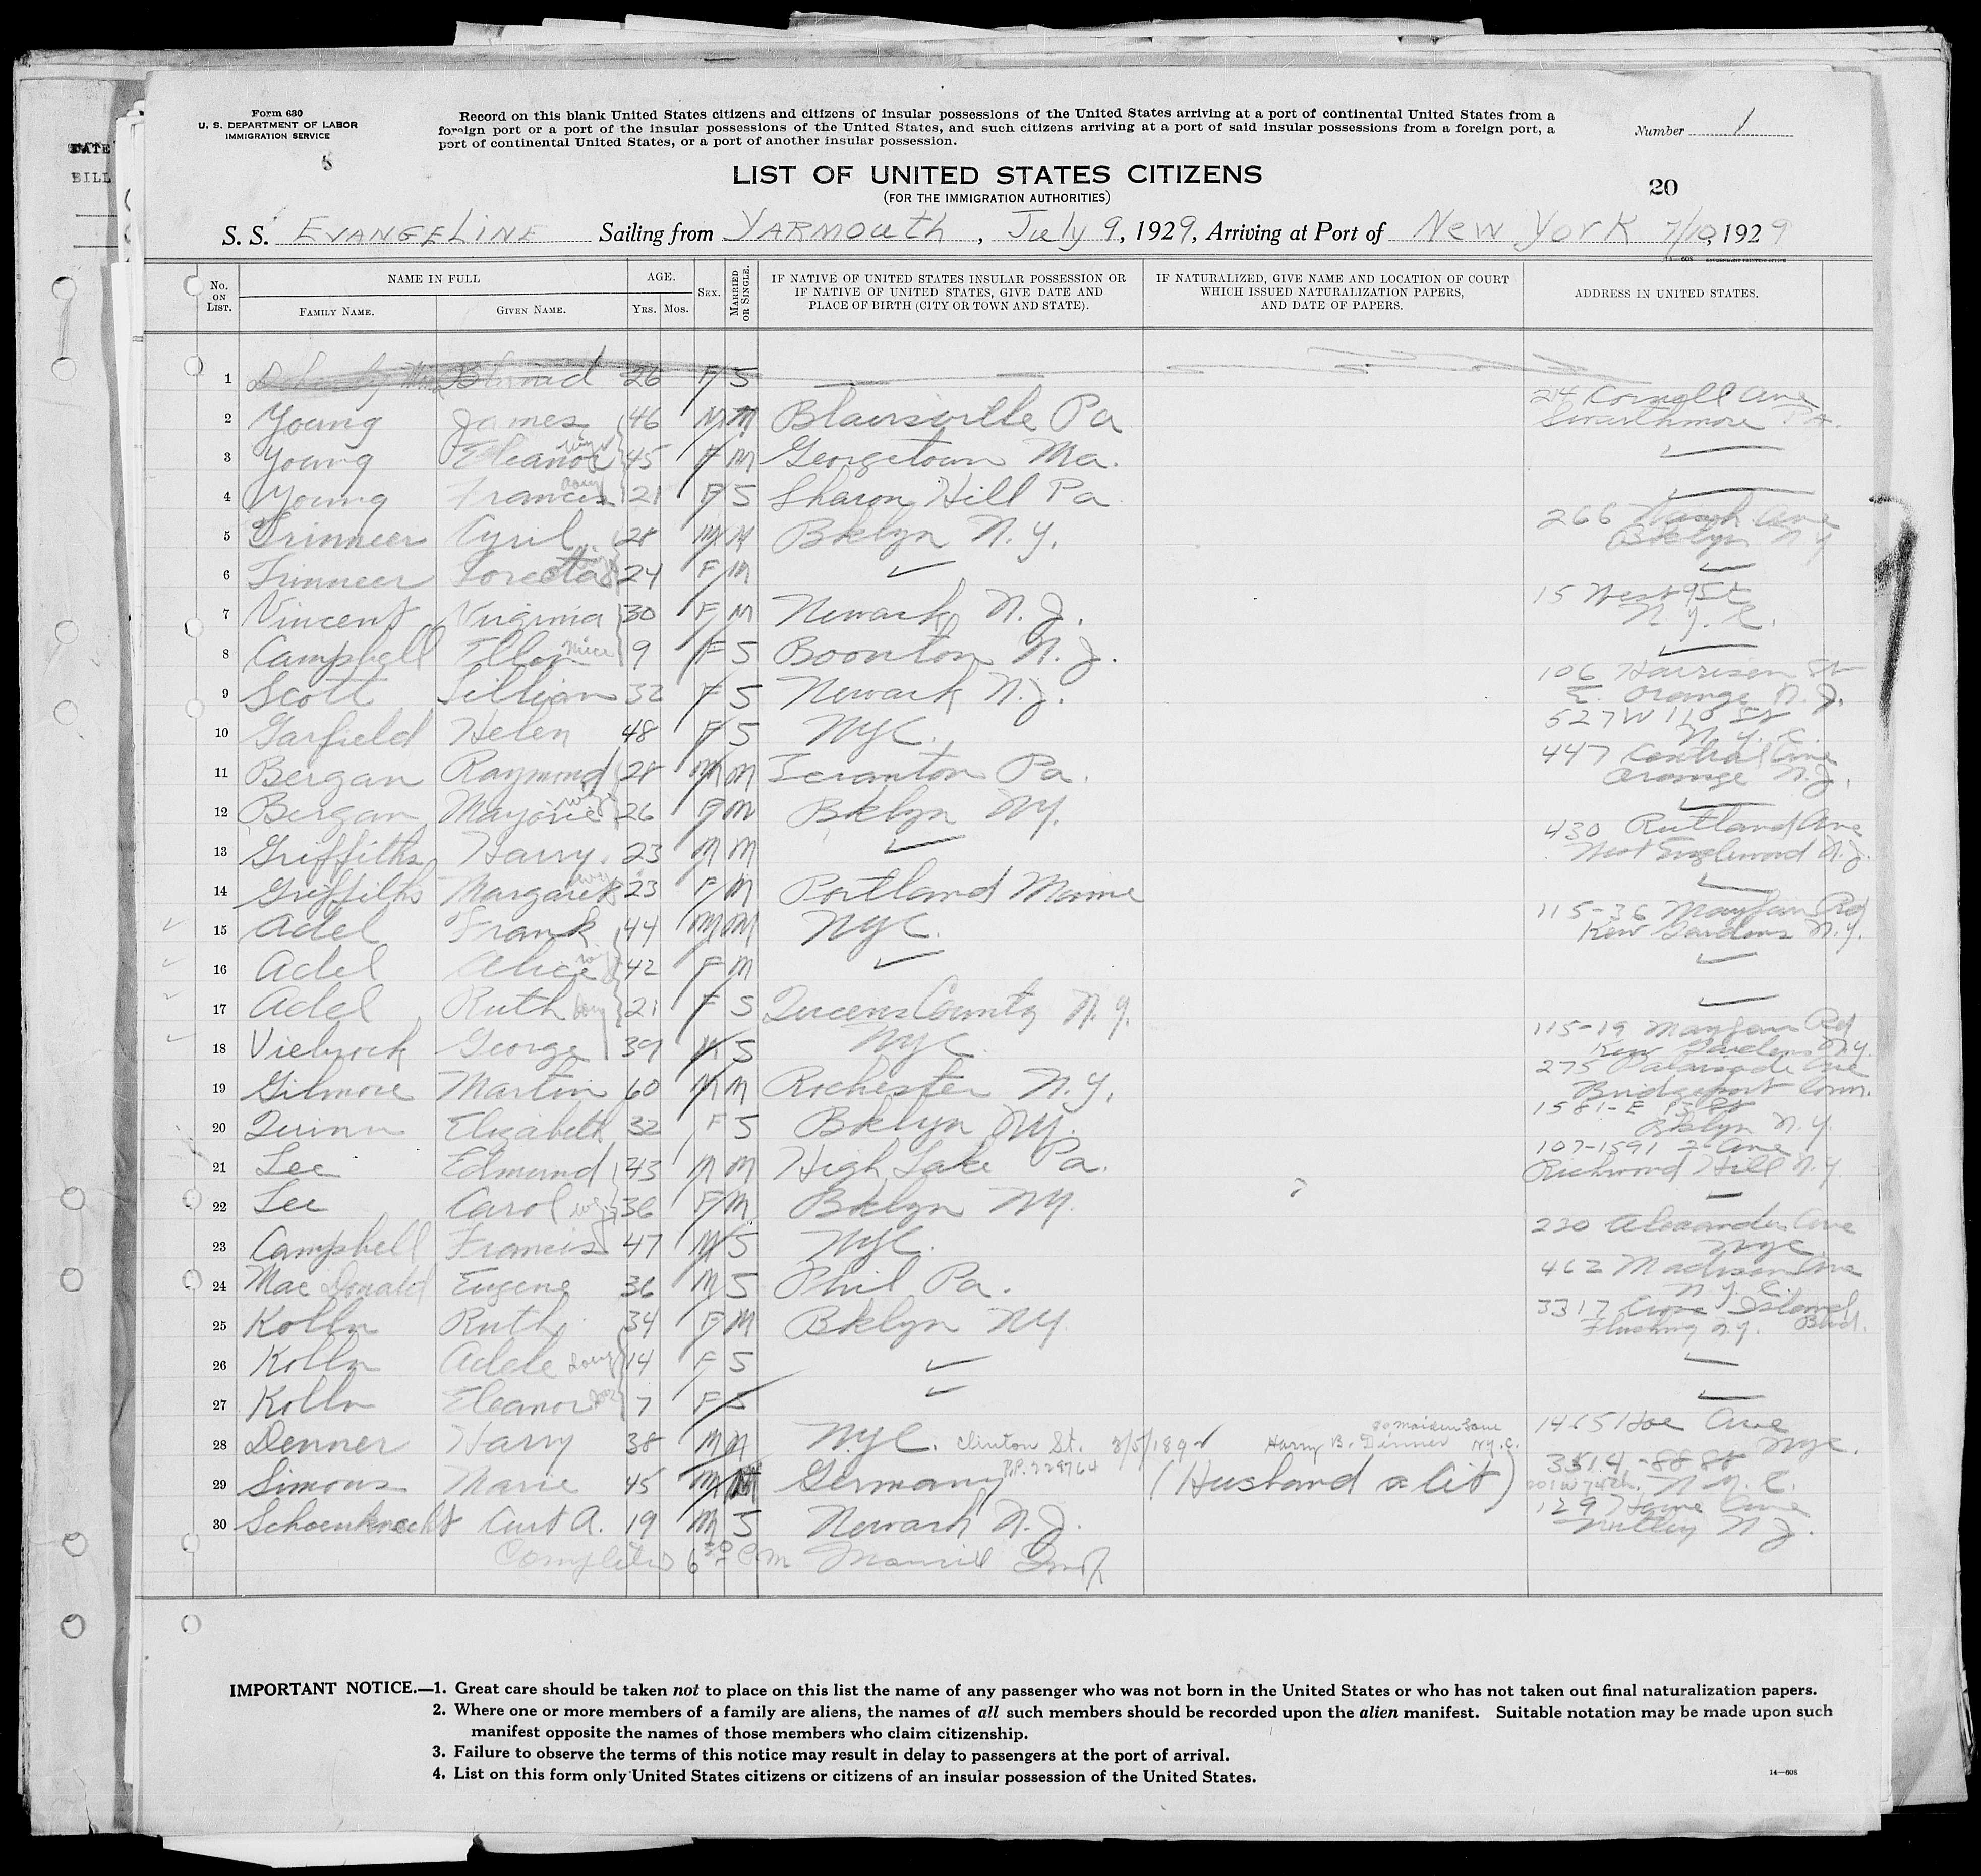 DATE
BILL
Form 630
U. S. DEPARTMENT OF LABOR
IMMIGRATION SERVICE
Record on this blank United States citizens and citizens of insular possessions of the United States arriving at a port of continental United States from a
foreign port or a port of the insular possessions of the United States, and such citizens arriving at a port of said insular possessions from a foreign port, a
port of continental United States, or a port of another insular possession.
Number 1
LIST OF UNITED STATES CITIZENS
(FOR THE IMMIGRATION AUTHORITIES)
20
S. S. EVANGELINE Sailing from YARMOUTH, July 9, 1929, Arriving at Port of New York 7/10, 1929
No. ON LIST. NAME IN FULL FAMILY NAME. GIVEN NAME. AGE. Yrs. Mos. SEX. MARRIED OR SINGLE. IF NATIVE OF UNITED STATES INSULAR POSSESSION OR IF NATIVE OF UNITED STATES, GIVE DATE AND PLACE OF BIRTH (CITY OR TOWN AND STATE). IF NATURALIZED, GIVE NAME AND LOCATION OF COURT WHICH ISSUED NATURALIZATION PAPERS, AND DATE OF PAPERS. ADDRESS IN UNITED STATES.
1 26 F S
2 Young James 46 M M Blairsville Pa 214 Cornell Ave Swarthmore Pa.
3 Young Eleanor 45 F M Georgetown Ma.
4 Young Francis 21 F S Sharon Hill Pa
5 Trinneer Cyril 28 M M Bklyn N.Y. 266 Wash. Ave Bklyn N.Y
6 Trinneer Loretta 24 F M
7 Vincent Virginia 30 F M Newark N.J. 15 West 95t N.Y.C.
8 Campbell Ellen niece 9 F S Boonton N.J.
9 Scott Lillian 32 F S Newark N.J. 106 Harrison St E. Orange N.J.
10 Garfield Helen 48 F S NYC. 527 W 110 St N.Y.C.
11 Bergan Raymond 28 M M Scranton Pa. 447 Central Ave Orange N.J.
12 Bergan Marjorie 26 F M Bklyn NY.
13 Griffiths Harry 23 M M 430 Rutland Ave West Englewood N.J.
14 Griffiths Margaret 23 F M Portland Maine
15 Adel Frank 44 M M NYC. 115-36 Mayfair Rd Kew Gardens N.Y.
16 Adel Alice 42 F M
17 Adel Ruth 21 F S Queens County N.Y.
18 Viebrock George 39 M S NYC 115-19 Mayfair Rd Kew Gardens N.Y.
19 Gilmore Martin 60 M M Rochester N.Y. 275 Palisade Ave Bridgeport Conn.
20 Quinn Elizabeth 32 F S Bklyn NY. 1581-E Bklyn N.Y.
21 Lee Edmund 43 M M High Lake Pa. Richmond Hill N.Y.
22 Lee Carol 36 F M Bklyn NY.
23 Campbell Francis 47 M S NYC. 230 Alexander Ave NYC
24 Mac Donald Eugene 36 M S Phil Pa. 462 Madison Ave N.Y.C.
25 Kolln Ruth 34 F M Bklyn NY. 3317 Cross Island Blvd. Flushing N.Y.
26 Kolln Adele 14 F S
27 Kolln Eleanor 7 F S
28 Denner Harry 38 M M NYC. Clinton St. Harry B. Denner 90 Maiden Lane N.Y.C. 1465 Hoe Ave NYC.
29 Simons Marie 45 M Germany P.P. 229764 (Husband a Cit) 3314-88 St N.Y.C.
30 Schoenknecht Curt A. 19 M S Newark N.J. 129 Nutley N.J.
Completed 6 30 PM
IMPORTANT NOTICE.—1. Great care should be taken not to place on this list the name of any passenger who was not born in the United States or who has not taken out final naturalization papers.
2. Where one or more members of a family are aliens, the names of all such members should be recorded upon the alien manifest. Suitable notation may be made upon such
manifest opposite the names of those members who claim citizenship.
3. Failure to observe the terms of this notice may result in delay to passengers at the port of arrival.
4. List on this form only United States citizens or citizens of an insular possession of the United States.
14—608